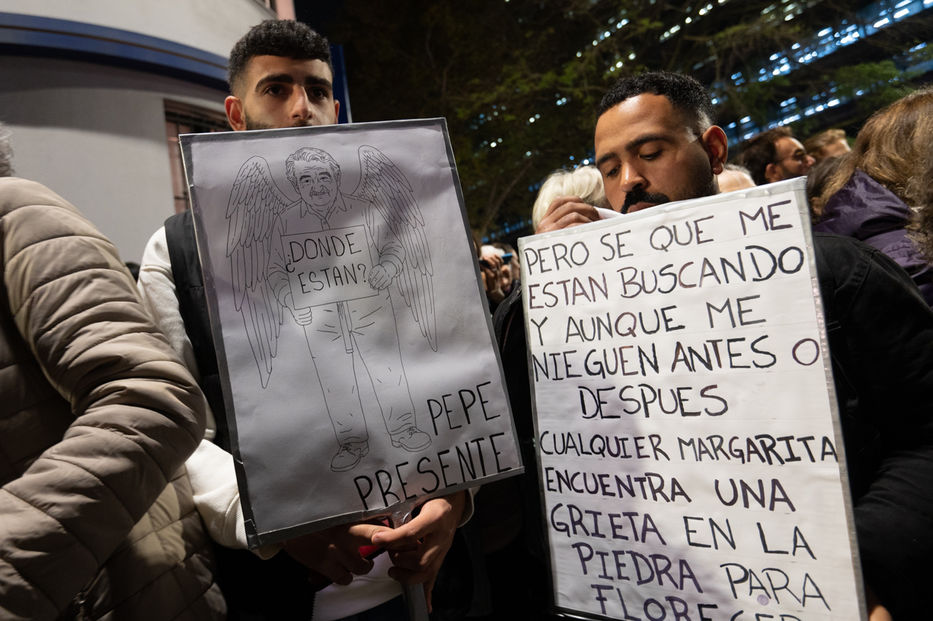 ¿DONDE
ESTAN?
PEPE
PRESENTE
PERO SE QUE ME
ESTAN BUSCANDO
Y AUNQUE ME
NIEGUEN ANTES O
DESPUES
CUALQUIER MARGARITA
ENCUENTRA UNA
GRIETA EN LA
PIEDRA PARA
FLORECER